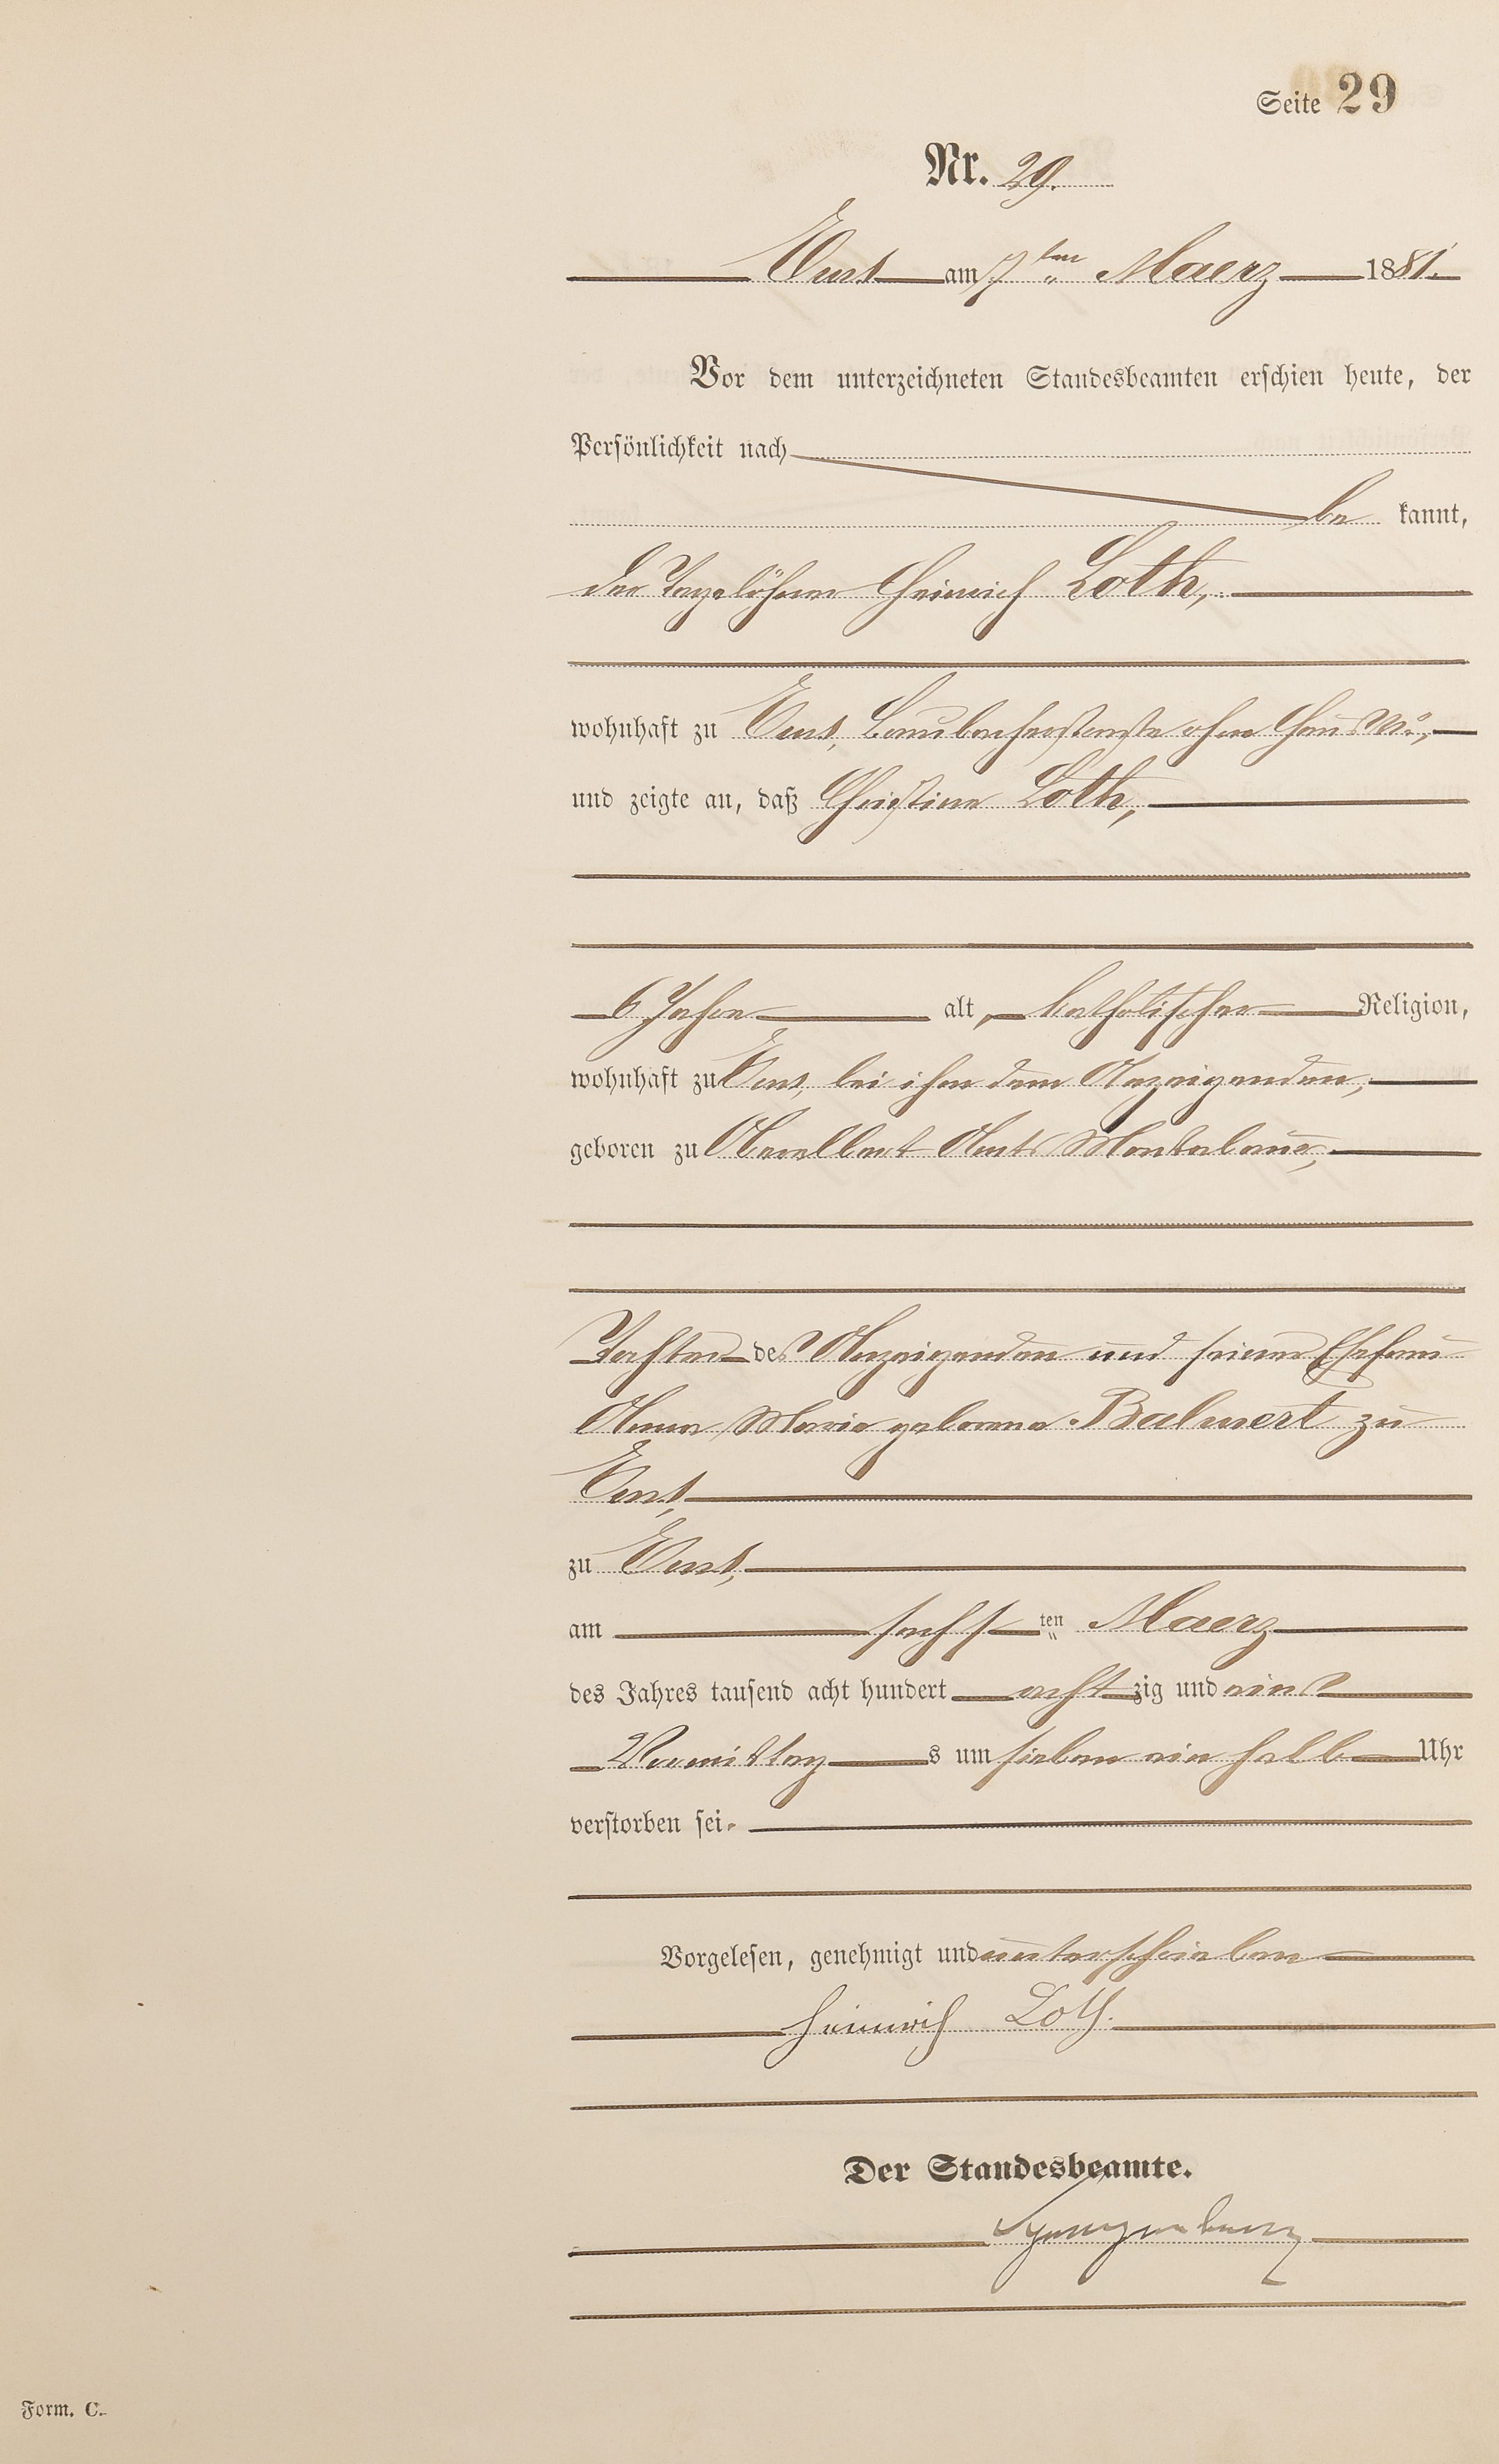 Seite 29
Nr. 29.
Ems am 7ten Maerz 1881.
Vor dem unterzeichneten Standesbeamten erschien heute, der
Persönlichkeit nach
be kannt,
der Tagelöhner Heinrich Loth,
wohnhaft zu Ems, Braubacherstraße ohne Haus No,
und zeigte an, daß Christine Loth,
6 Jahre alt, katholischer Religion,
wohnhaft zu Ems, bei ihm dem Anzeigenden,
geboren zu Oberelbert Amts Montabaur,
Tochter des Anzeigenden und seiner Ehefrau
Anna Maria geborene Balmert zu
Ems,
zu Ems,
am sechsten Maerz
des Jahres tausend acht hundert achtzig und eins
Vormittags um sieben ein halb Uhr
verstorben sei.
Vorgelesen, genehmigt und unterschrieben
Heinrich Loth.
Der Standesbeamte.
Form. C.